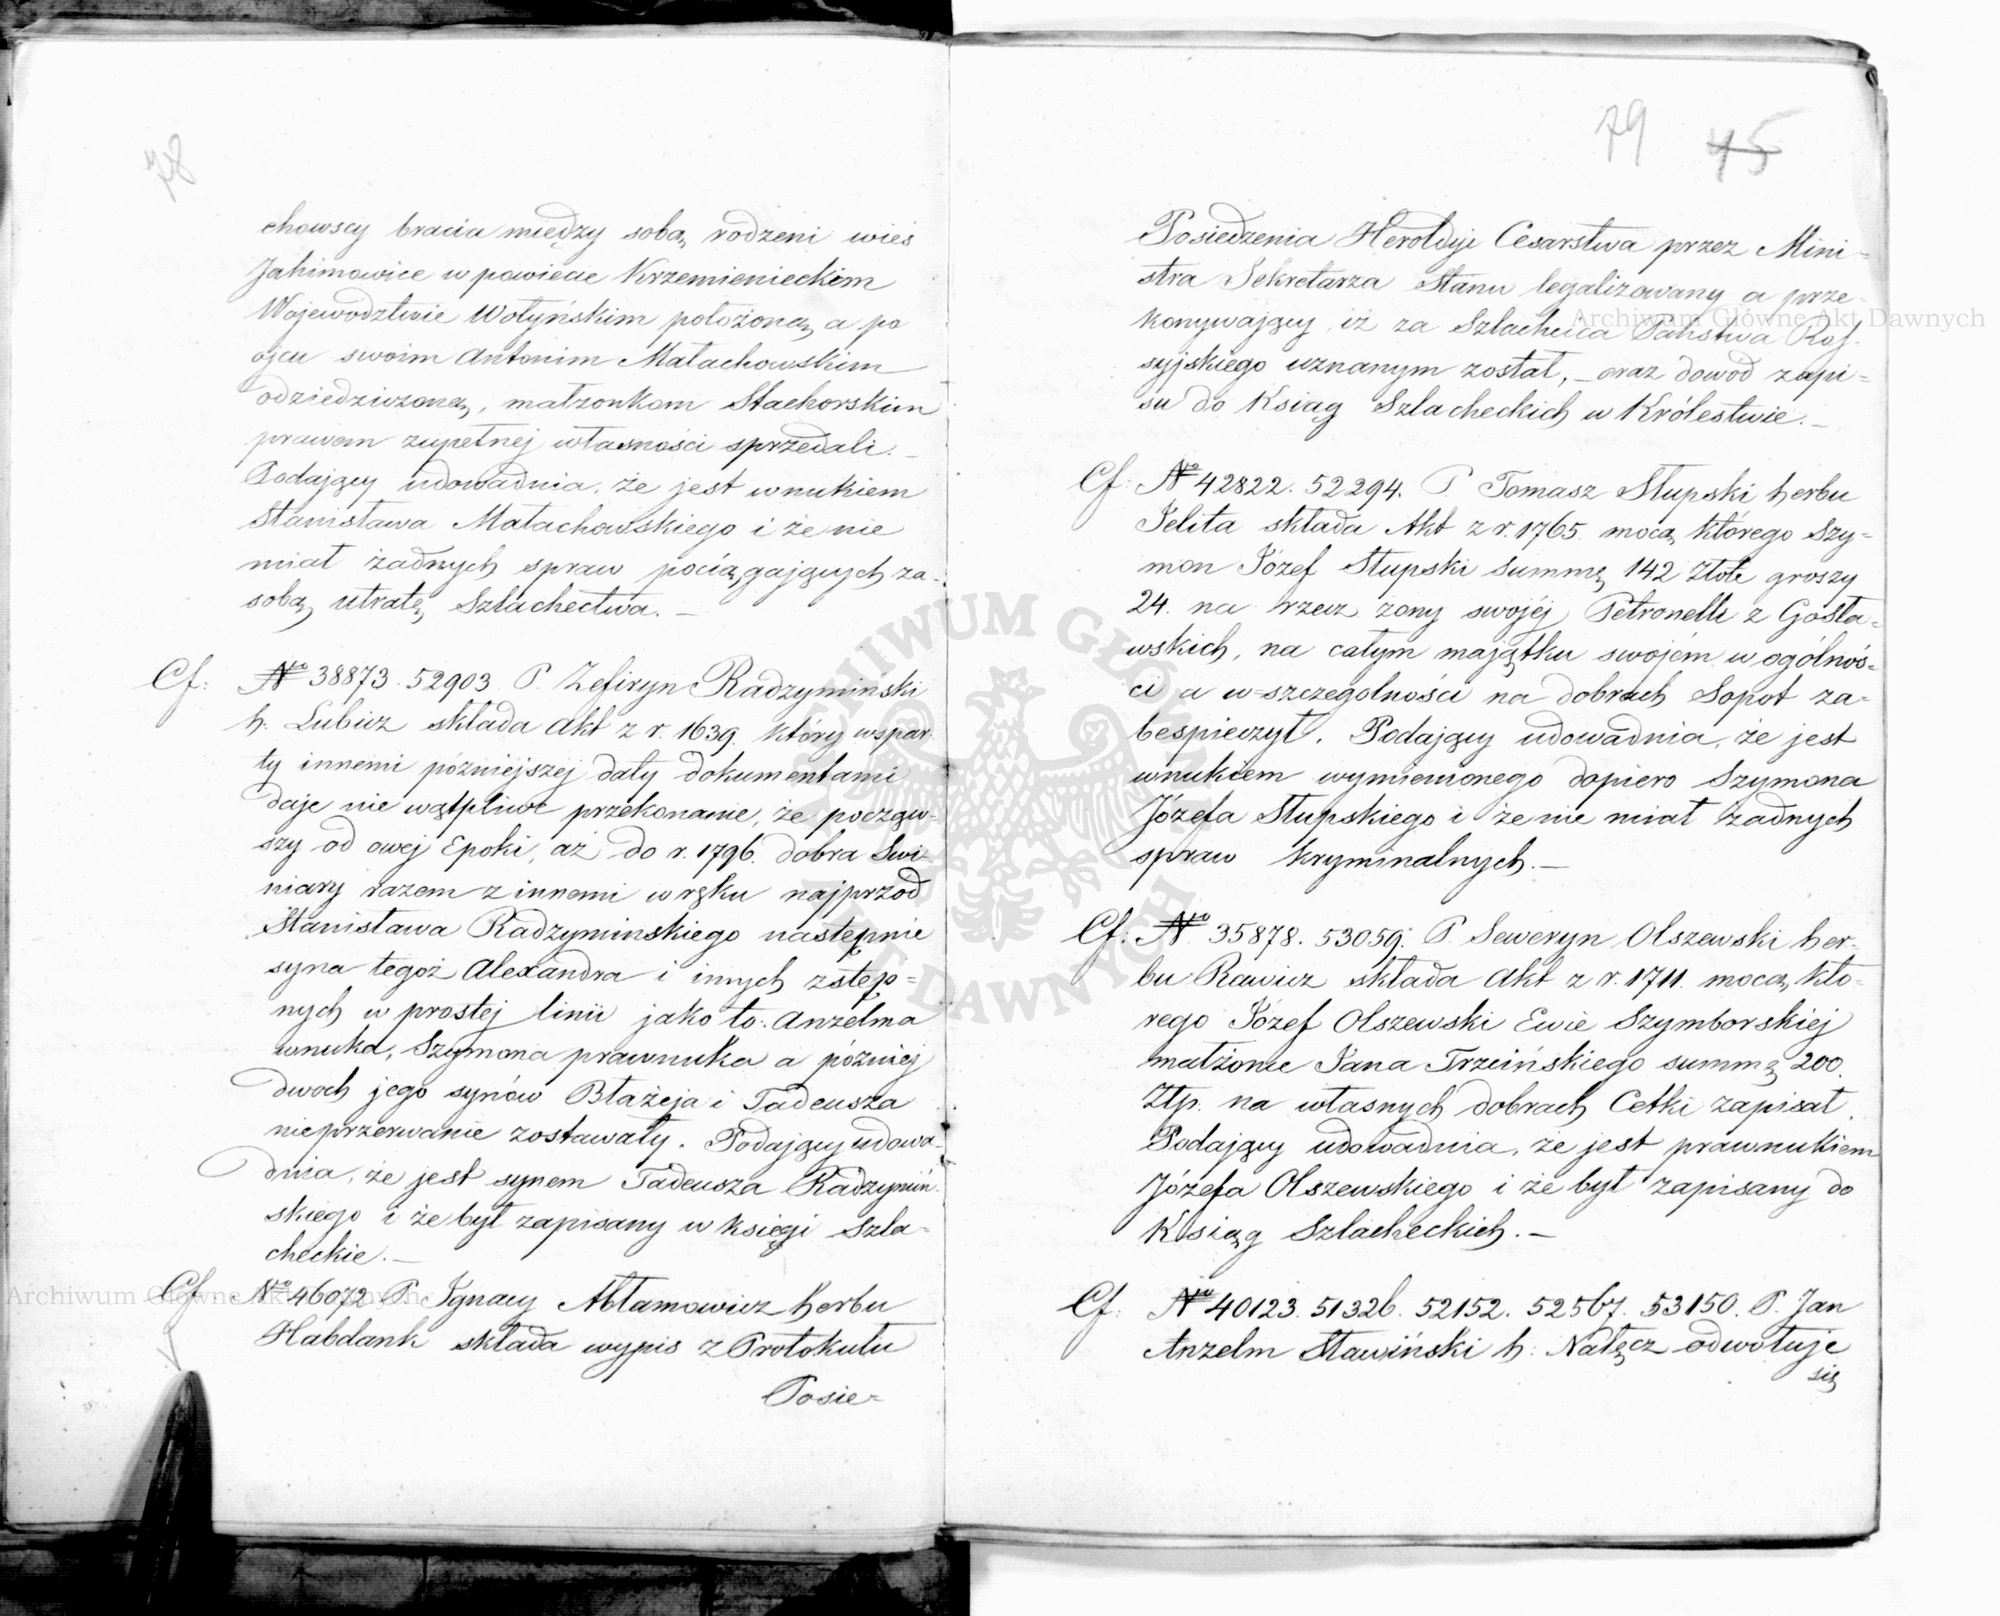 78
chowscy bracia między sobą rodzeni wieś
Jahimowice w powiecie Krzemienieckim
Wojewodztwie Wołyńskim położoną, a po
ojcu swoim Antonim Małachowskim
odziedziczoną, małżonkom Stachorskim
prawem zupełnej własności sprzedali. –
Podający udowadnia, że jest wnukiem
Stanisława Małachowskiego i że nie
miał żadnych spraw pociągających za
sobą utratę Szlachectwa. –
Cf: No 38873. 52903 P. Zefiryn Radzymiński
h. Lubicz składa Akt z r. 1639. który wspar-
ty innemi późniejszej daty dokumentami
daje nie wątpliwe przekonanie, że począw-
szy od owej Epoki, aż do r. 1796. dobra Swi-
niary razem z innemi w ręku najprzod
Stanisława Radzyminskiego następnie
syna tegoż Alexandra i innych zstęp=
nych w prostej linii jako to: Anzelma
wnuka, Szymona prawnuka a później
dwoch jego synów Błażeja i Tadeusza
nieprzerwanie zostawały. Podający udowa-
dnia, że jest synem Tadeusza Radzymiń-
skiego i że był zapisany w księgi Szla-
checkie. –
Cf. No 46072 P. Ignacy Abłamowicz herbu
Habdank składa wypis z Protokułu
Posie=
79 45
Posiedzenia Heroldyi Cesarstwa przez Mini=
stra Sekretarza Stanu legalizowany a prze-
konywający iż za Szlachcica Państwa Ros-
syjskiego uznanym został, – oraz dowód zapi=
su do Ksiąg Szlacheckich w Królestwie. –
Cf: No 42822. 52294. P. Tomasz Słupski herbu
Jelita składa Akt z r. 1765. mocą którego Szy=
mon Józef Słupski Summę 142 Złote groszy
24. na rzecz żony swojéj Petronelli z Gosła=
wskich, na całym majątku swojém w ogólnoś=
ci a w szczególności na dobrach Sopot za-
bespieczył. Podający udowadnia, że jest
wnukiem wymienionego dopiero Szymona
Józefa Słupskiego i że nie miał żadnych
spraw kryminalnych. –
Cf: No 35878. 53059. P. Seweryn Olszewski her-
bu Rawicz składa Akt z r. 1711. mocą, któ-
rego Józef Olszewski Ewie Szymborskiej
małżonce Jana Trzcińskiego summę 200.
Złp. na własnych dobrach Cetki zapisał.
Podający udowadnia, że jest prawnukiem
Józefa Olszewskiego i że był zapisany do
Ksiąg Szlacheckich. –
Cf: No 40123. 51326. 52152. 52567. 53150. P. Jan
Anzelm Sławiński h. Nałęcz odwołuje
się
Archiwum Główne Akt Dawnych
Archiwum Główne Akt Dawnych
ARCHIWUM GŁÓWNE AKT DAWNYCH